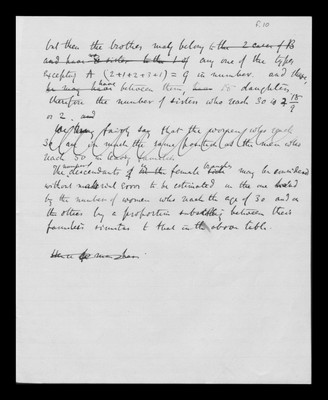 F. 10
but then the brother may belong to the 2 cases of B
and have no sister to the 1 of any one of the types
excepting A (2+1+2+3+1) = 9 in number. and they
he may have have between them, 18 daughters,
therefore the number of sisters who reach 30 is 18/9
or 2. and
We may fairly say that the women who reach
30 are in much the same position as the men who
reach 50 in every
The descendants of the female may be considered
without material error to be estimated in the one
by the number of women who reach the age of 30 and in
the other by a proportion subsisting between their
families similar to that in the above table.